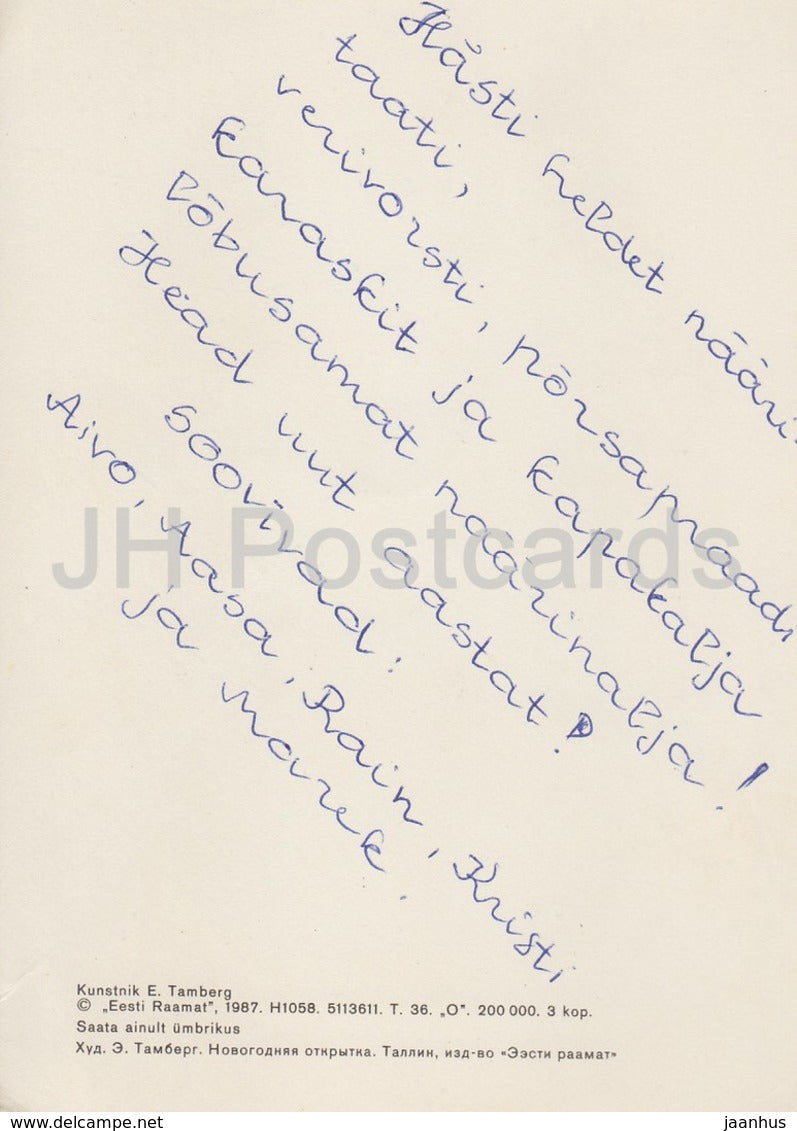 Hästi heldet nääri-
taati,
verivorsti, põrsapraadi,
karaskit ja kapakalja
lõbusamat näärinalja!
Head uut aastat!
soovivad:
Aivo, Aasa, Rain, Kristi
ja Marek.
JH Postcards
Kunstnik E. Tamberg
© „Eesti Raamat", 1987. H1058. 5113611. T. 36. „O". 200 000. 3 kop.
Saata ainult ümbrikus
Худ. Э. Тамберг. Новогодняя открытка. Таллин, изд-во «Ээсти раамат»
www.delcampe.net
jaanhus